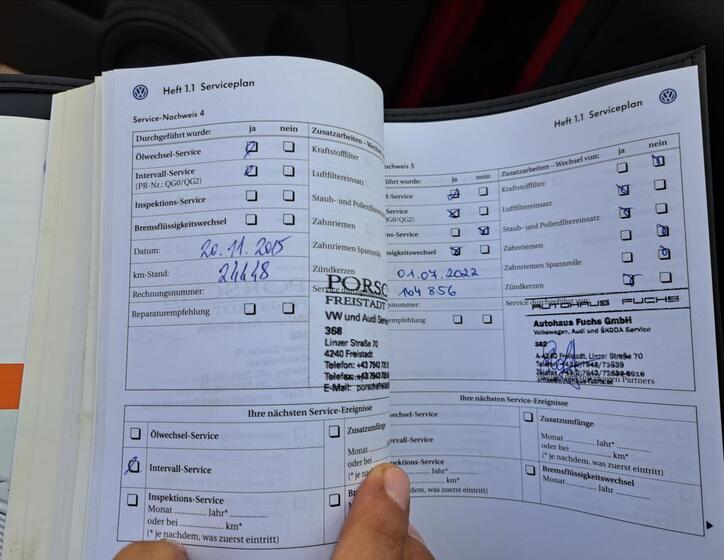 Heft 1.1 Serviceplan
Service-Nachweis 4
Durchgeführt wurde: ja nein Zusatzarbeiten – Wechsel
Ölwechsel-Service Kraftstofffilter
Intervall-Service
(PR-Nr.: QG0/QG2) Luftfiltereinsatz
Inspektions-Service Staub- und Pollenfiltereinsatz
Bremsflüssigkeitswechsel Zahnriemen
Datum: 20.11.2015 Zahnriemen Spannrolle
km-Stand: 24448 Zündkerzen
Rechnungsnummer: Service
Reparaturempfehlung
PORSC
FREISTADT
VW und Audi Serv
368
Linzer Straße 70
4240 Freistadt
Telefon: +43 7942
Telefax: +43 794
E-Mail: porschefreistadt
Ihre nächsten Service-Ereignisse
Ölwechsel-Service Zusatzumfänge
Monat
Intervall-Service oder bei
(* je nachdem, was
Inspektions-Service
Monat ........... Jahr* ...........
oder bei ........... km*
(* je nachdem, was zuerst eintritt)
Heft 1.1 Serviceplan
weis 5
ührt wurde: ja nein Zusatzarbeiten – Wechsel von: ja nein
el-Service Kraftstofffilter
ervice
QG0/QG2) Luftfiltereinsatz
ns-Service Staub- und Pollenfiltereinsatz
sigkeitswechsel Zahnriemen
01.07.2022 Zahnriemen Spannrolle
104 856 Zündkerzen
gsnummer: Service durchgeführt von:
empfehlung
AUTOHAUS FUCHS
Autohaus Fuchs GmbH
Volkswagen, Audi und ŠKODA Service
362
A-4240 Freistadt, Linzer Straße 70
Partners
Ihre nächsten Service-Ereignisse
chsel-Service Zusatzumfänge
Monat ........... Jahr* ...........
rvall-Service oder bei ........... km*
(* je nachdem, was zuerst eintritt)
pektions-Service Bremsflüssigkeitswechsel
........... Jahr* ........... Monat ........... Jahr ...........
........... km*
dem, was zuerst eintritt)